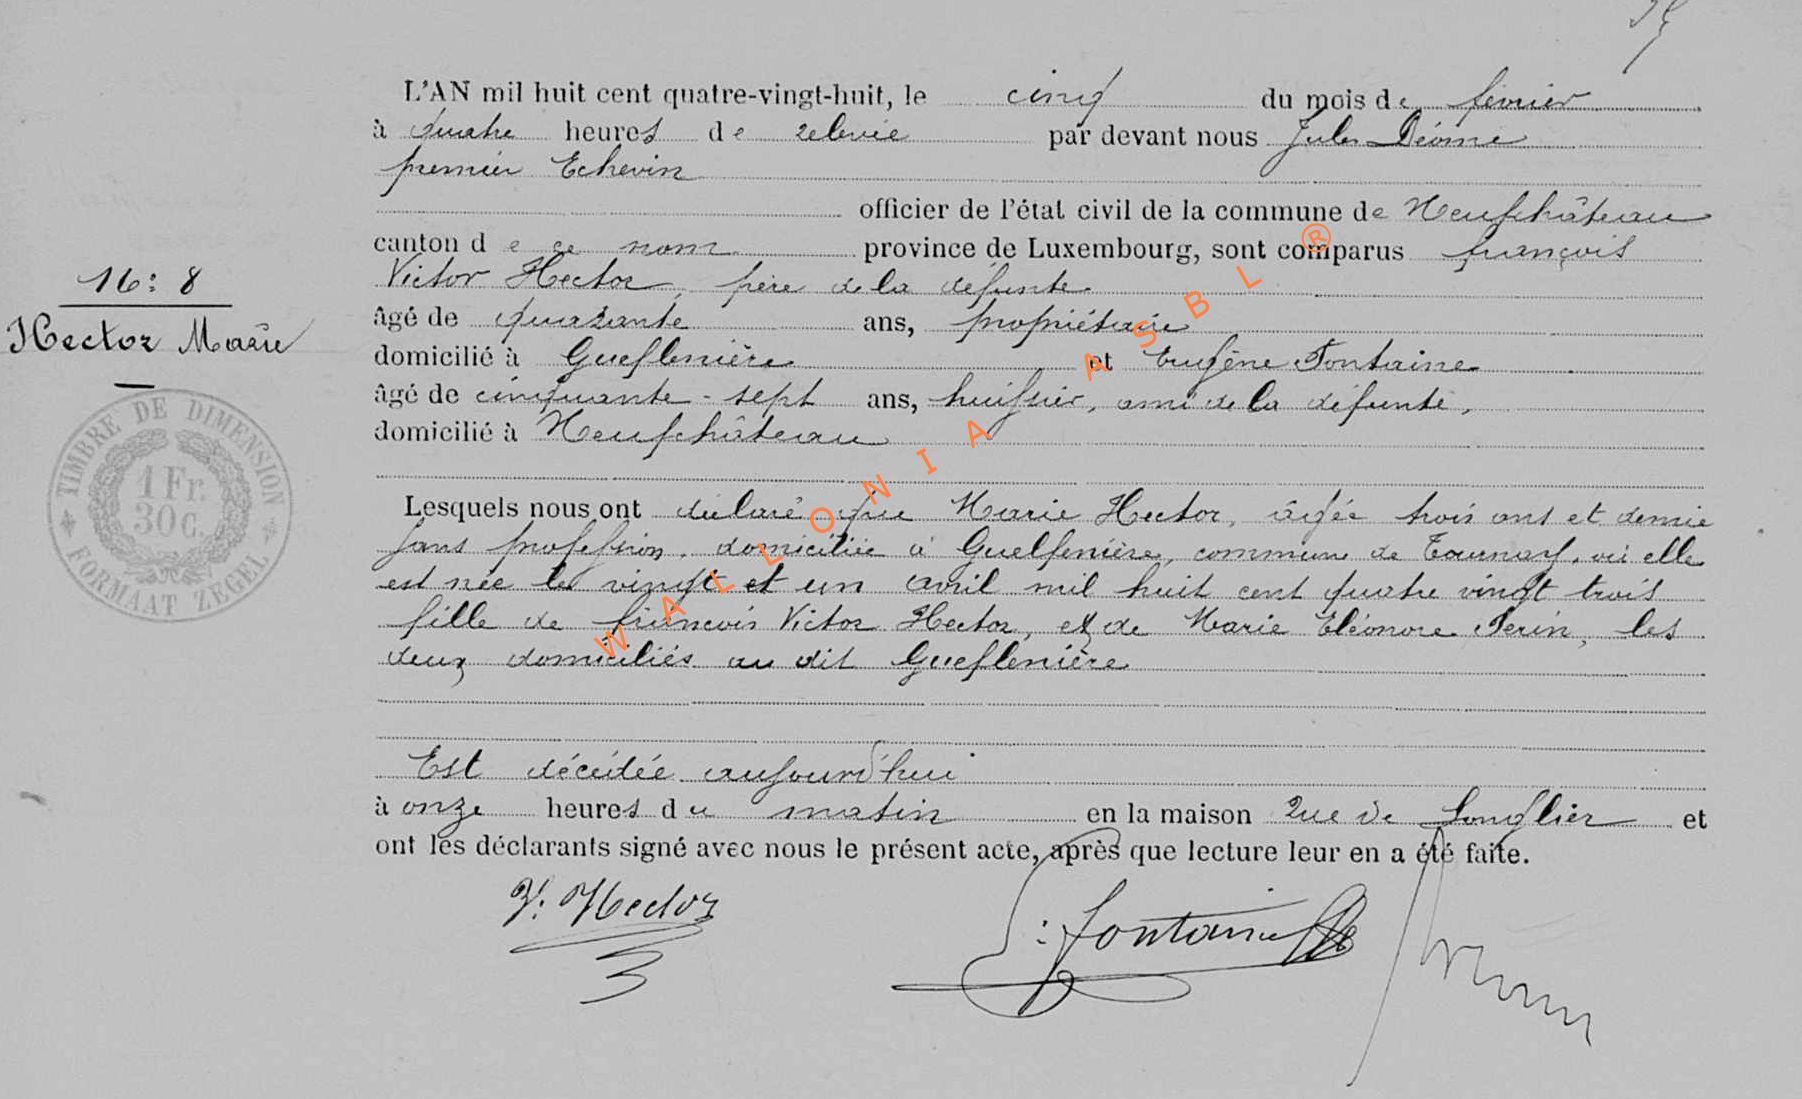 L'AN mil huit cent quatre-vingt-huit, le cinq du mois de février
à quatre heures de relevée par devant nous Jules Déome
premier Echevin
officier de l'état civil de la commune de Neufchâteau
canton de ce nom province de Luxembourg, sont comparus françois
Victor Hector, père de la défunte
âgé de quarante ans, propriétaire
domicilié à Gueflenière et Eugène Fontaine
âgé de cinquante-sept ans, huissier, ami de la défunte,
domicilié à Neufchâteau
16: 8
Hector Marie
TIMBRE DE DIMENSION
1 Fr.
30 C.
FORMAAT ZEGEL
Lesquels nous ont déclaré que Marie Hector, âgée trois ans et demie
sans profession, domiciliée à Guelfenière, commune de Tournay, où elle
est née le vingt et un avril mil huit cent quatre vingt trois
fille de françois Victor Hector, et de Marie Eléonore Perin, les
deux domiciliés au dit Gueflenière
Est décédée aujourd'hui
à onze heures du matin en la maison rue de Longlier et
ont les déclarants signé avec nous le présent acte, après que lecture leur en a été faite.
V. Hector
fontaine
WALLONIA ASBL ®